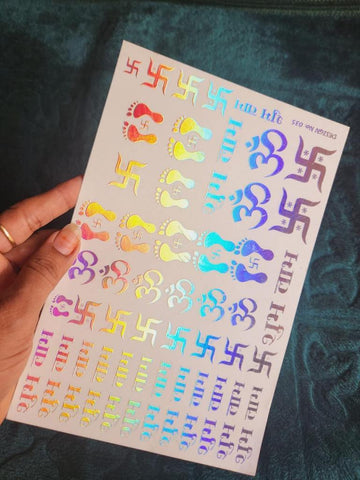 DESIGN No: 035
शुभ लाभ
ॐ
शुभ लाभ
ॐ
शुभ लाभ
ॐ ॐ ॐ ॐ ॐ ॐ
शुभ लाभ शुभ लाभ शुभ लाभ शुभ लाभ शुभ लाभ शुभ लाभ शुभ लाभ शुभ लाभ शुभ लाभ शुभ लाभ